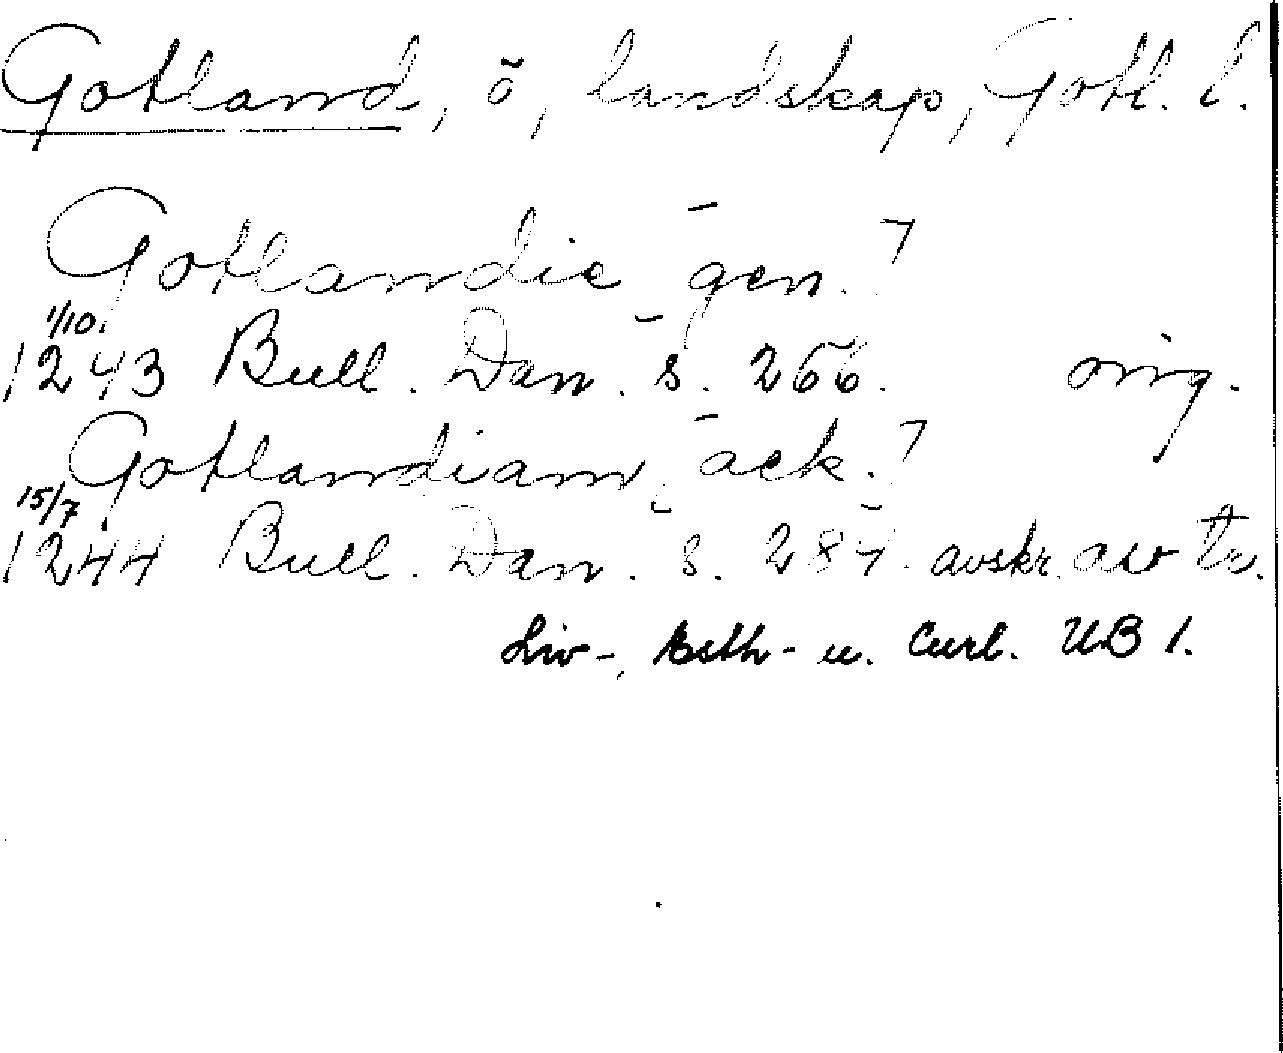 Gotland, ö, landskap, Gotl. l.
Gotlandie [gen.]
1/10.
1243 Bull. Dan. s. 266. orig.
Gotlandiam [ack.]
15/7
1244 Bull. Dan. s. 284. avskr. av tr.
Liv-, Esth- u. Curl. UB 1.